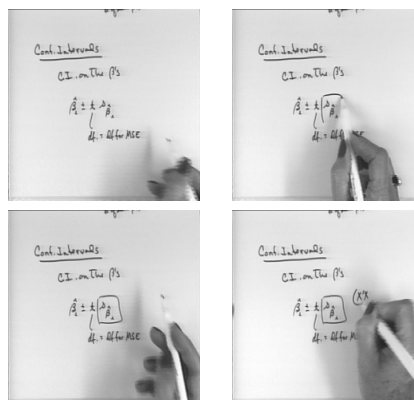 Conf. Intervals
C.I. on the β's
β̂ᵢ ± t s β̂ᵢ
df. = df for MSE
Conf. Intervals
C.I. on the β's
β̂ᵢ ± t s β̂ᵢ
df. = df for MSE
Conf. Intervals
C.I. on the β's
β̂ᵢ ± t s β̂ᵢ
df. = df for MSE
Conf. Intervals
C.I. on the β's
(X'X
β̂ᵢ ± t s β̂ᵢ
df. = df for